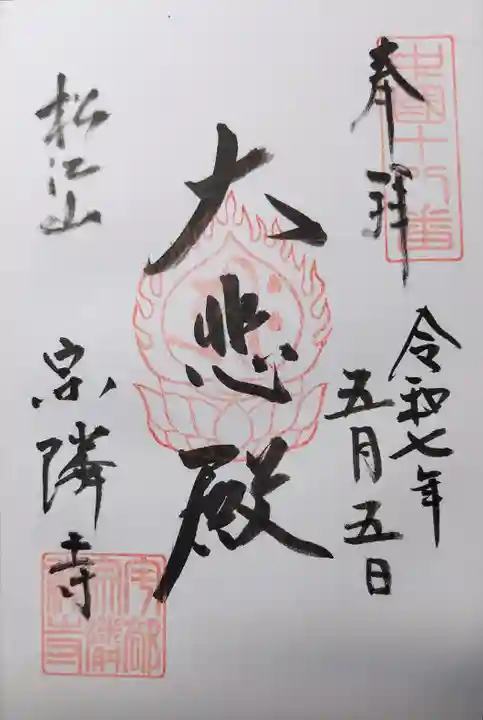 奉拝
中国十八番
令和七年
五月五日
大悲殿
松江山
宗隣寺